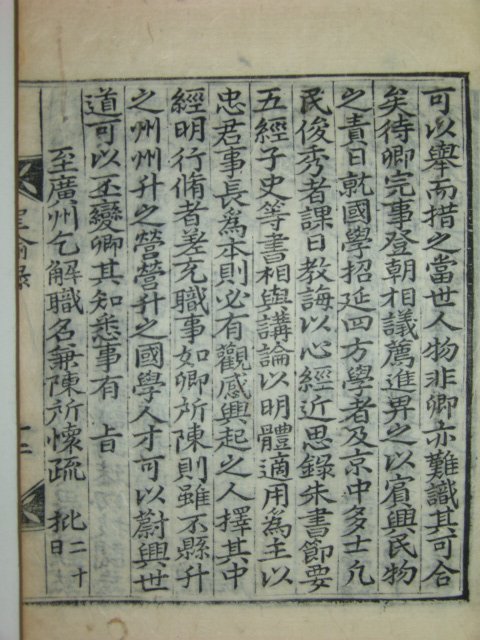 可以擧而措之當世人物非卿亦難識其可合
矣待卿完事登朝相議薦進畀之以賓興民物
之責日就國學招延四方學者及京中多士凡
民俊秀者課日敎誨以心經近思錄朱書節要
五經子史等書相與講論以明體適用爲主以
忠君事長爲本則必有觀感興起之人擇其中
經明行脩者差充職事如卿所陳則雖不縣升
之州州升之營營升之國學人才可以蔚興世
道可以丕變卿其知悉事有 旨
至廣州乞解職名兼陳所懷疏 批 二十
日